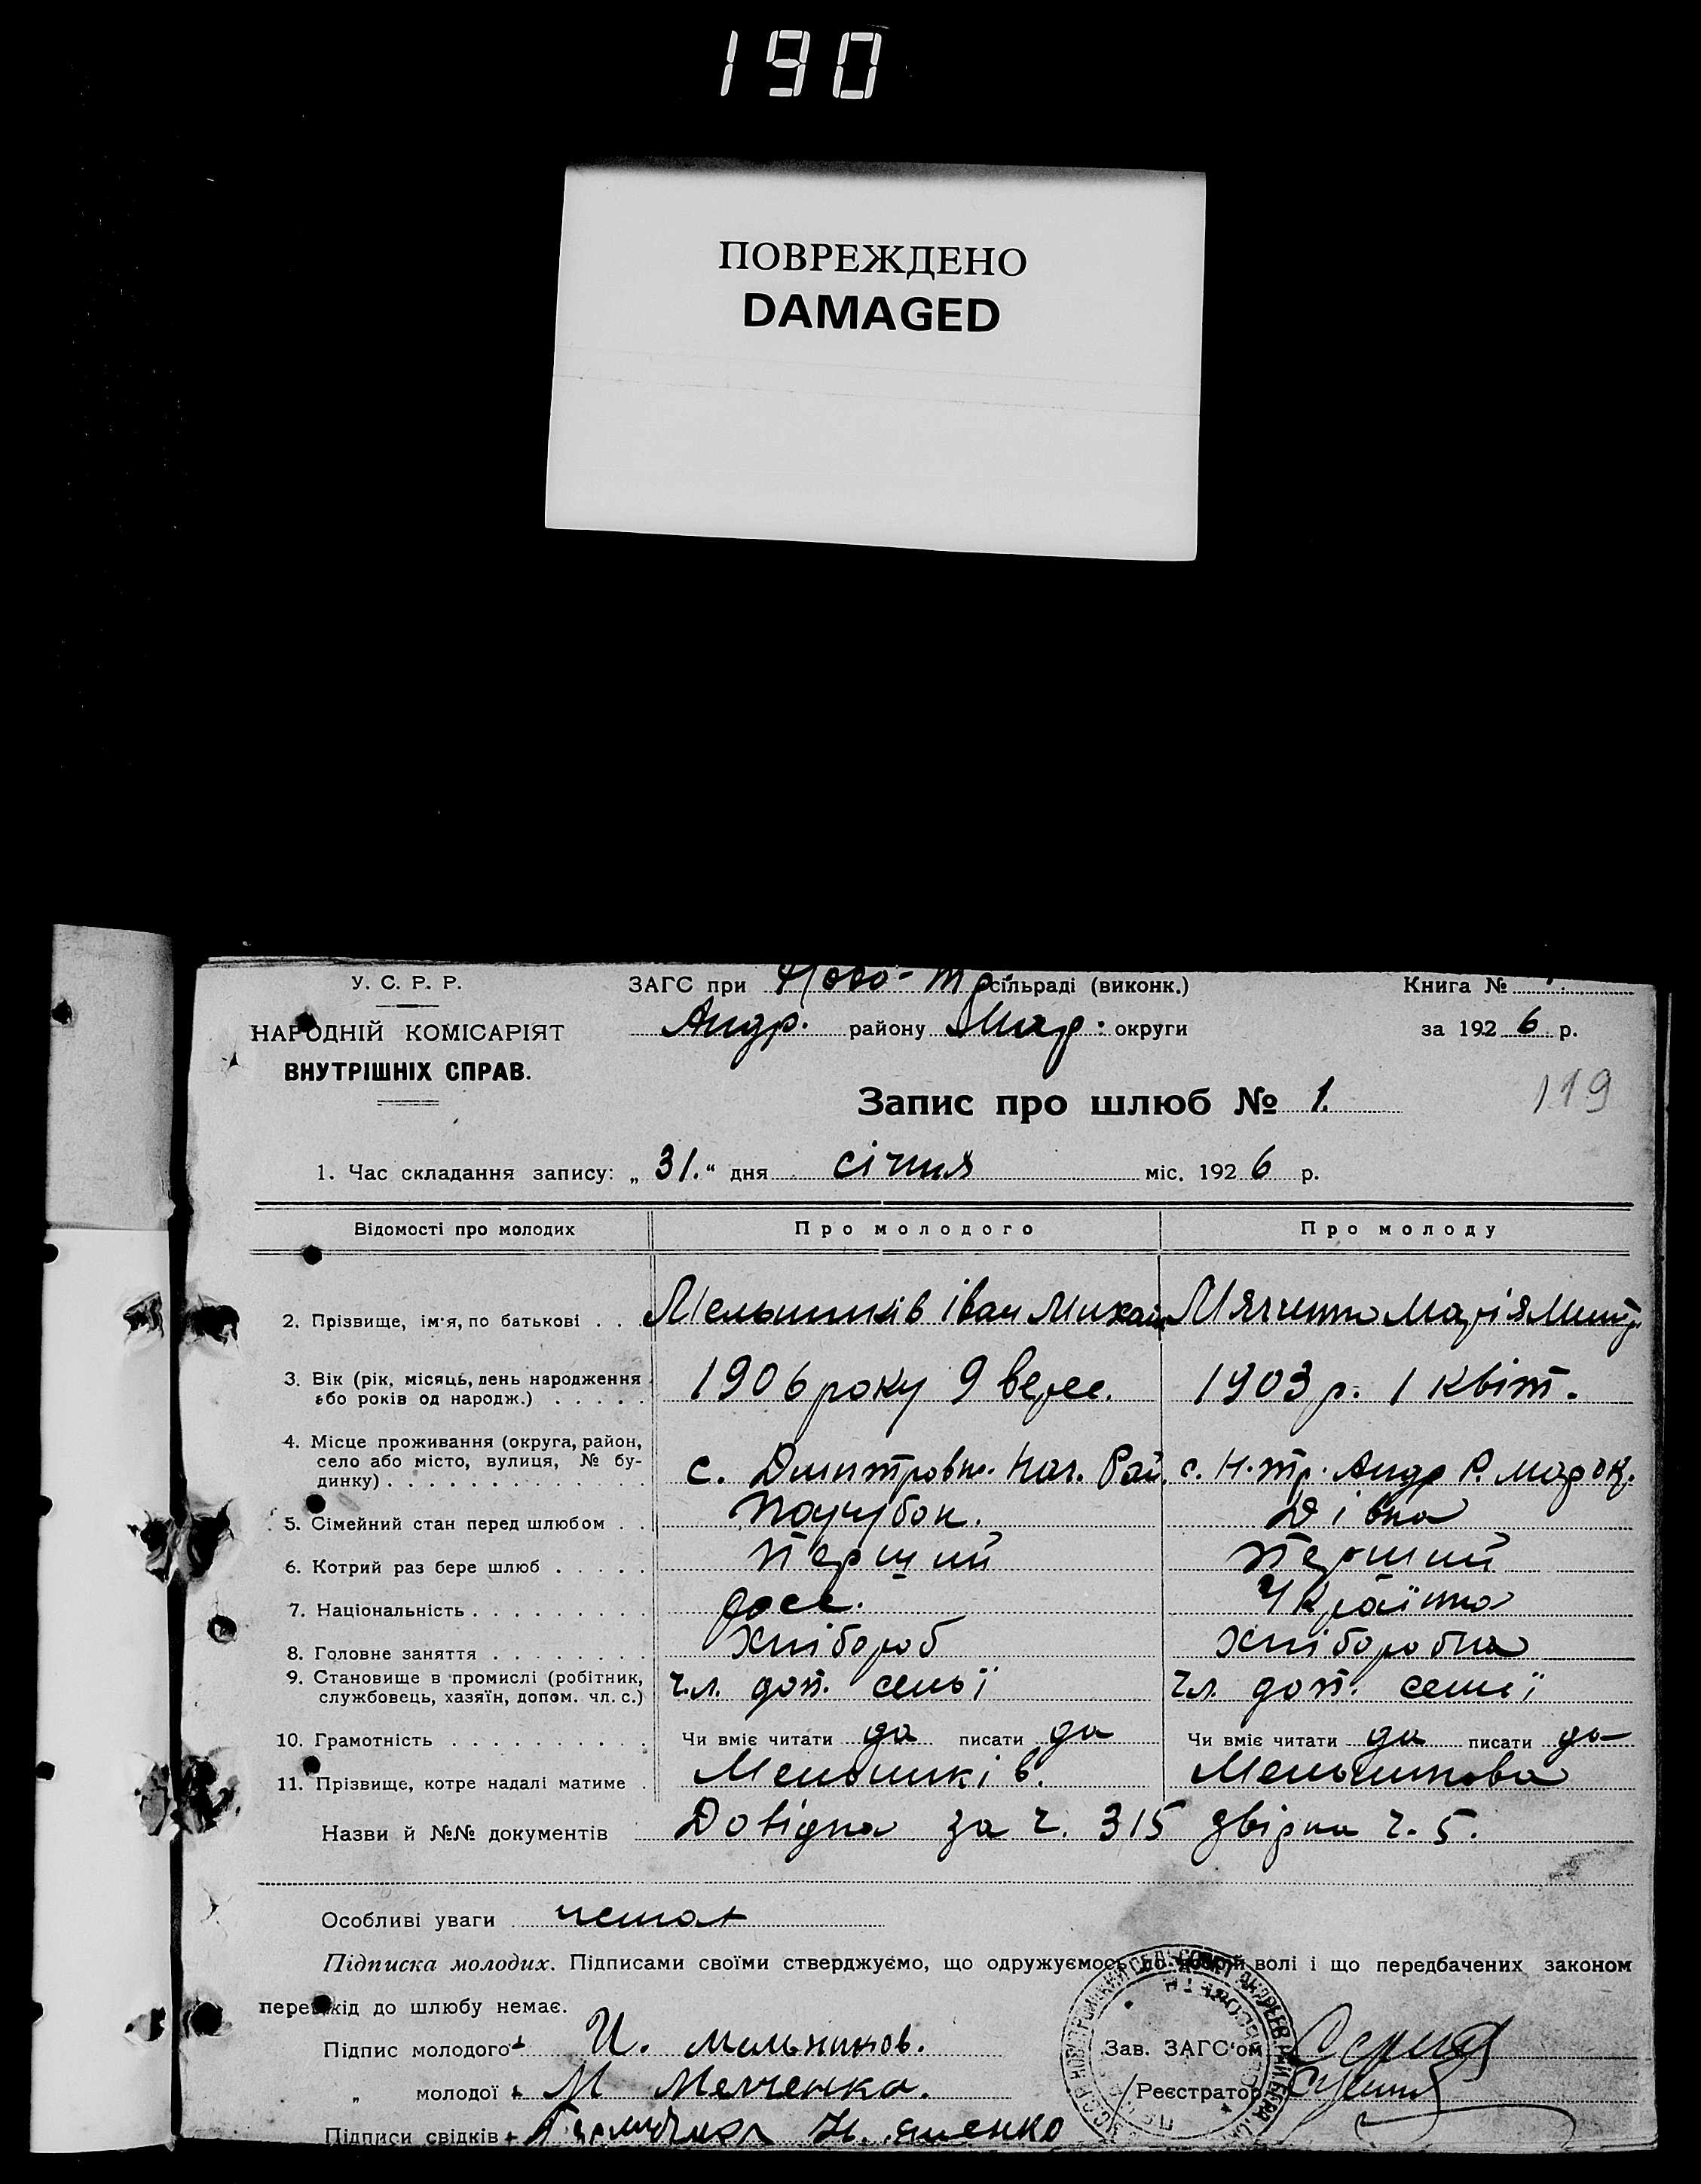 190
ПОВРЕЖДЕНО
DAMAGED
У. С. Р. Р.
НАРОДНІЙ КОМІСАРІЯТ
ВНУТРІШНІХ СПРАВ.
ЗАГС при Ново-Тр. сільраді (виконк.)
Андр. району Мар. округи
Книга №
за 1926 р.
119
Запис про шлюб № 1.
1. Час складання запису: „31.“ дня січня міс. 1926 р.
Відомості про молодих Про молодого Про молоду
2. Прізвище, ім'я, по батькові . . Мельників Іван Михай Марія
3. Вік (рік, місяць, день народження 1906 року 9 верес. 1903 р. 1 квіт.
або років од народж.) . . . . .
4. Місце проживання (округа, район,
село або місто, вулиця, № бу- с. Дмитровк. Рай. с. Н.-Тр. Андр Р. Мар ок.
динку) . . . . . . . . . . . . . .
5. Сімейний стан перед шлюбом . . Парубок. Дівка
6. Котрий раз бере шлюб . . . . . Перший Перший
7. Національність . . . . . . . . . росс. Українка
8. Головне заняття . . . . . . . . Хлібороб Хліборобка
9. Становище в промислі (робітник, чл. доп. семьї чл. доп. семьї
службовець, хазяїн, допом. чл. с.)
10. Грамотність . . . . . . . . . . Чи вміє читати да писати да Чи вміє читати да писати да
11. Прізвище, котре надалі матиме . Мельників. Мельникова
Назви й №№ документів Довідка за ч. 315 звірка ч. 5.
Особливі уваги немає
Підписка молодих. Підписами своїми стверджуємо, що одружуємось по добрій волі і що передбачених законом
перешкід до шлюбу немає.
Підпис молодого И. Мельников.
„ молодої М
Підписи свідків
Зав. ЗАГС'ом
Реєстратор